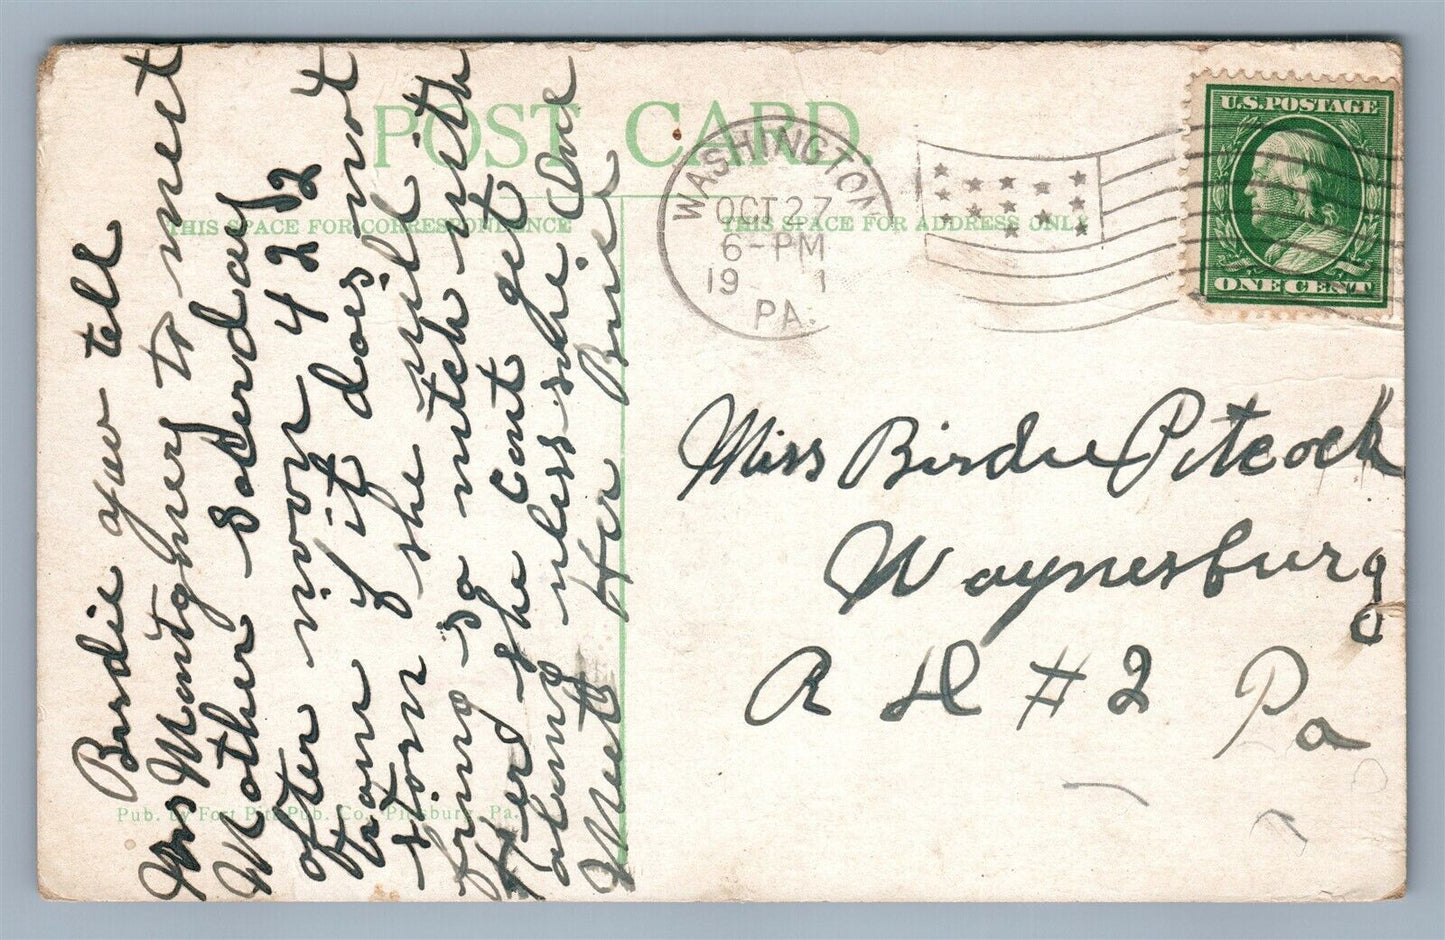 POST CARD.
THIS SPACE FOR CORRESPONDENCE
THIS SPACE FOR ADDRESS ONLY
WASHINGTON
OCT 27
6-PM
19 1
PA.
U.S. POSTAGE
ONE CENT
Birdie you tell
Mrs Montgmery to meet
Mother Saterdaus
after noon 4 2 8 2
train if it does not
storm she will
bring so mutch with
Her she cant get
along unless she One
Meets Her Brie
Miss Birdie Pitcock
Waynesburg
R D # 2 Pa
Pub. by Fort Pitt Pub. Co., Pittsburg, Pa.